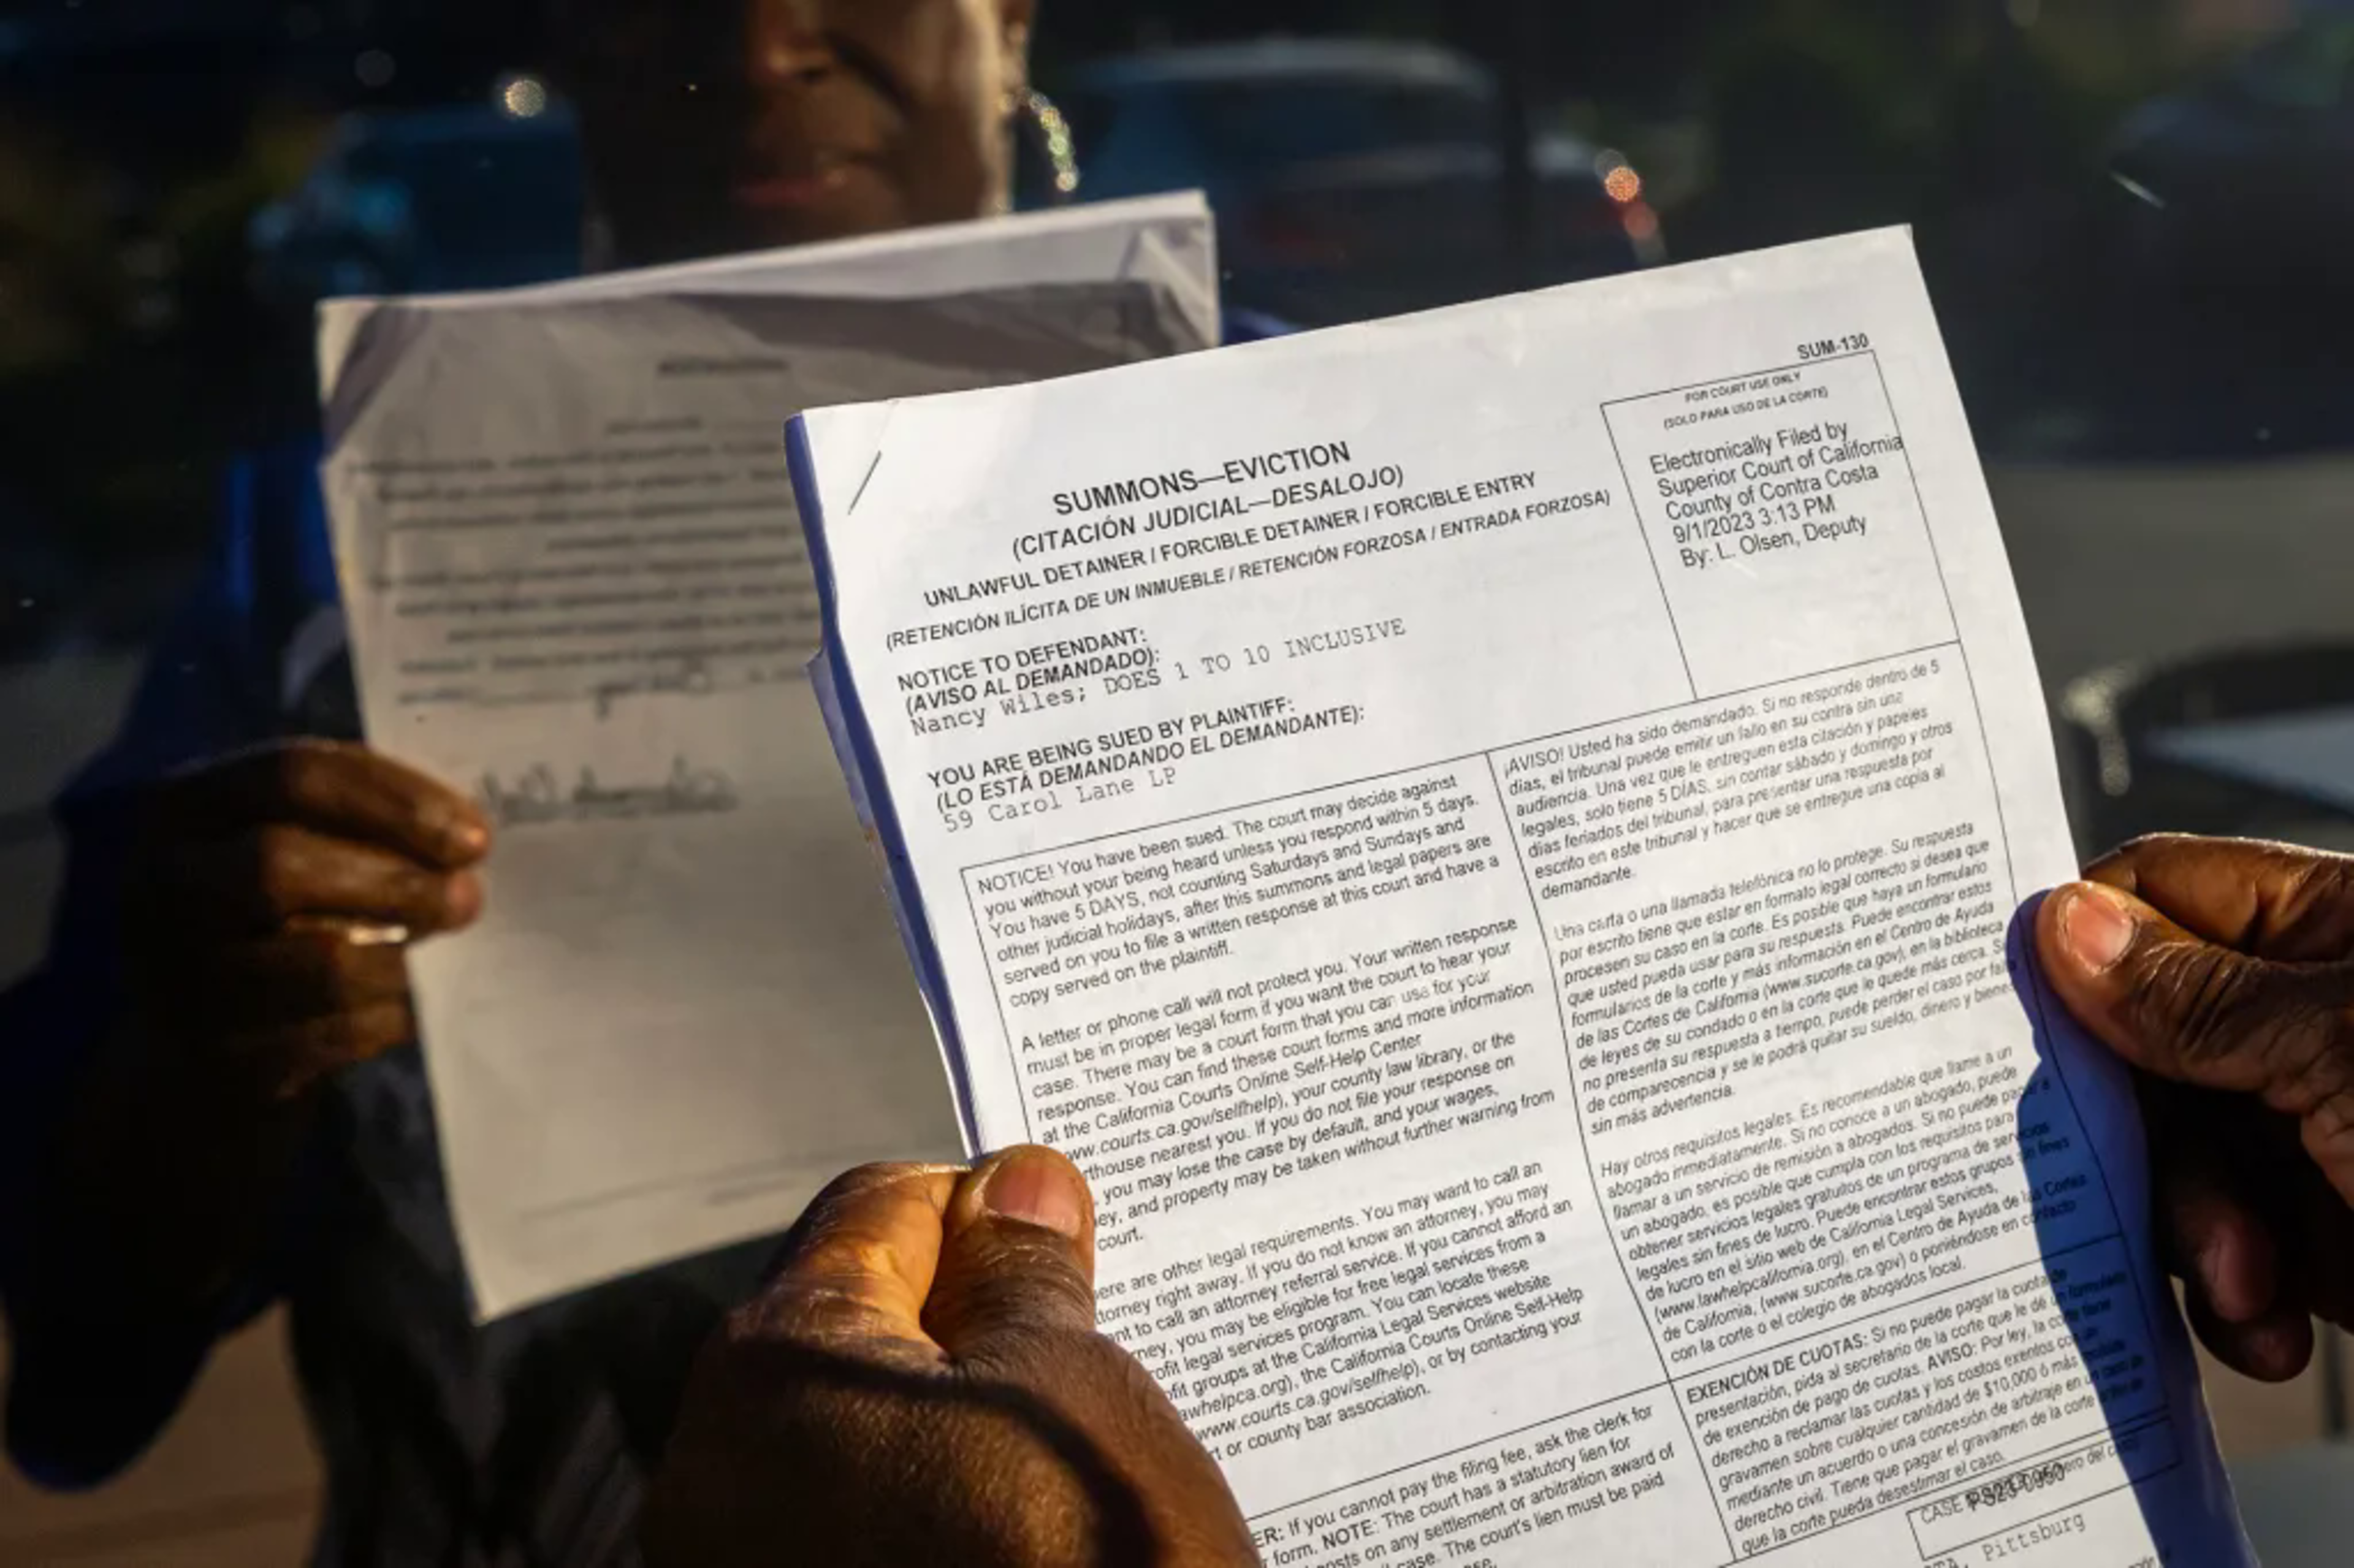 SUM-130
SUMMONS—EVICTION
(CITACIÓN JUDICIAL—DESALOJO)
UNLAWFUL DETAINER / FORCIBLE DETAINER / FORCIBLE ENTRY
(RETENCIÓN ILÍCITA DE UN INMUEBLE / RETENCIÓN FORZOSA / ENTRADA FORZOSA)
FOR COURT USE ONLY
(SOLO PARA USO DE LA CORTE)
Electronically Filed by
Superior Court of California
County of Contra Costa
9/1/2023 3:13 PM
By: L. Olsen, Deputy
NOTICE TO DEFENDANT:
(AVISO AL DEMANDADO):
Nancy Wiles; DOES 1 TO 10 INCLUSIVE
YOU ARE BEING SUED BY PLAINTIFF:
(LO ESTÁ DEMANDANDO EL DEMANDANTE):
59 Carol Lane LP
NOTICE! You have been sued. The court may decide against
you without your being heard unless you respond within 5 days.
You have 5 DAYS, not counting Saturdays and Sundays and
other judicial holidays, after this summons and legal papers are
served on you to file a written response at this court and have a
copy served on the plaintiff.
A letter or phone call will not protect you. Your written response
must be in proper legal form if you want the court to hear your
case. There may be a court form that you can use for your
response. You can find these court forms and more information
at the California Courts Online Self-Help Center
ww.courts.ca.gov/selfhelp), your county law library, or the
rthouse nearest you. If you do not file your response on
, you may lose the case by default, and your wages,
ey, and property may be taken without further warning from
court.
ere are other legal requirements. You may want to call an
torney right away. If you do not know an attorney, you may
nt to call an attorney referral service. If you cannot afford an
rney, you may be eligible for free legal services from a
ofit legal services program. You can locate these
fit groups at the California Legal Services website
awhelpca.org), the California Courts Online Self-Help
www.courts.ca.gov/selfhelp), or by contacting your
rt or county bar association.
¡AVISO! Usted ha sido demandado. Si no responde dentro de 5
días, el tribunal puede emitir un fallo en su contra sin una
audiencia. Una vez que le entreguen esta citación y papeles
legales, solo tiene 5 DÍAS, sin contar sábado y domingo y otros
días feriados del tribunal, para presentar una respuesta por
escrito en este tribunal y hacer que se entregue una copia al
demandante.
Una carta o una llamada telefónica no lo protege. Su respuesta
por escrito tiene que estar en formato legal correcto si desea que
procesen su caso en la corte. Es posible que haya un formulario
que usted pueda usar para su respuesta. Puede encontrar estos
formularios de la corte y más información en el Centro de Ayuda
de las Cortes de California (www.sucorte.ca.gov), en la biblioteca
de leyes de su condado o en la corte que le quede más cerca. Si
no presenta su respuesta a tiempo, puede perder el caso por falta
de comparecencia y se le podrá quitar su sueldo, dinero y bienes
sin más advertencia.
Hay otros requisitos legales. Es recomendable que llame a un
abogado inmediatamente. Si no conoce a un abogado, puede
llamar a un servicio de remisión a abogados. Si no puede pagar a
un abogado, es posible que cumpla con los requisitos para
obtener servicios legales gratuitos de un programa de servicios
legales sin fines de lucro. Puede encontrar estos grupos sin fines
de lucro en el sitio web de California Legal Services,
(www.lawhelpcalifornia.org), en el Centro de Ayuda de las Cortes
de California, (www.sucorte.ca.gov) o poniéndose en contacto
con la corte o el colegio de abogados local.
ER: If you cannot pay the filing fee, ask the clerk for
form. NOTE: The court has a statutory lien for
costs on any settlement or arbitration award of
case. The court's lien must be paid
se.
EXENCIÓN DE CUOTAS: Si no puede pagar la cuota de
presentación, pida al secretario de la corte que le dé un formulario
de exención de pago de cuotas. AVISO: Por ley, la corte tiene
derecho a reclamar las cuotas y los costos exentos con un
gravamen sobre cualquier cantidad de $10,000 ó más recibida
mediante un acuerdo o una concesión de arbitraje en un caso de
derecho civil. Tiene que pagar el gravamen de la corte antes de
que la corte pueda desestimar el caso.
CASE PS23-0950
Pittsburg